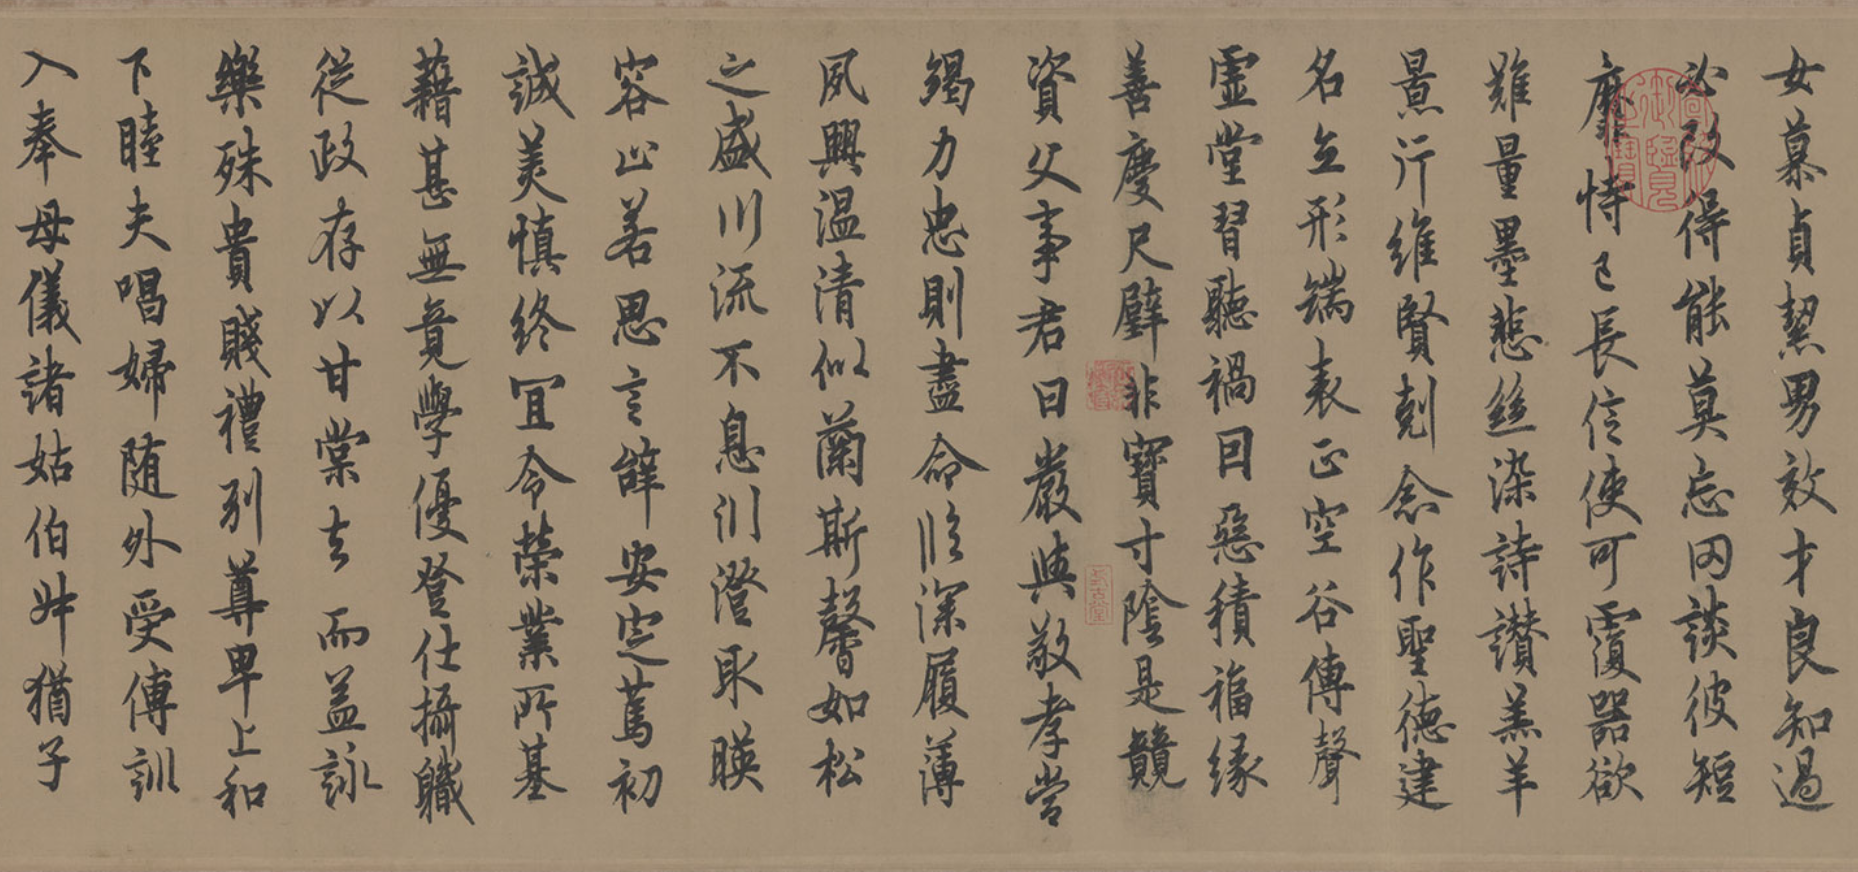 女慕貞絜男效才良知過
必改得能莫忘罔談彼短
靡恃己長信使可覆器欲
難量墨悲絲染詩讚羔羊
景行維賢剋念作聖德建
名立形端表正空谷傳聲
虛堂習聽禍因惡積福緣
善慶尺璧非寶寸陰是競
資父事君曰嚴與敬孝當
竭力忠則盡命臨深履薄
夙興溫清似蘭斯馨如松
之盛川流不息淵澄取暎
容止若思言辭安定篤初
誠美慎終宜令榮業所基
藉甚無竟學優登仕攝職
從政存以甘棠去而益詠
樂殊貴賤禮別尊卑上和
下睦夫唱婦随外受傅訓
入奉母儀諸姑伯叔猶子
式古堂